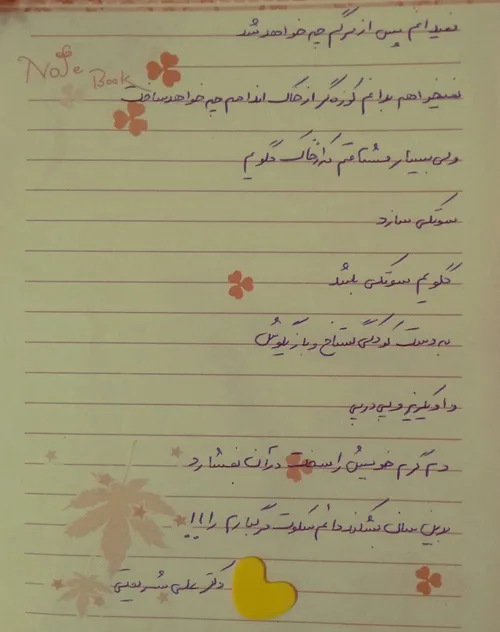 نمیدانم پس از مرگم چه خواهد شد
Note Book
نمیخواهم بدانم کوزه گر از خاک اندامم چه خواهد ساخت
ولی بسیار مشتاقم که از خاک گلویم
سوتکی سازد
گلویم سوتکی باشد
به دست کودکی گستاخ و بازیگوش
و او یکریز و پی در پی
دم گرم خویش را سخت در آن بفشارد
بدین سان بشکند دائم سکوت مرگبارم را!!!
دکتر علی شریعتی